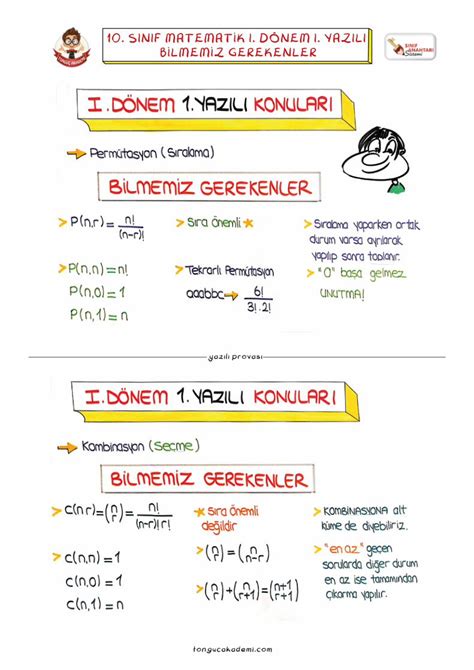 10. SINIF MATEMATİK I. DÖNEM I. YAZILI
BİLMEMİZ GEREKENLER
SINIF
ANAHTARI
Sistemi
I. DÖNEM 1. YAZILI KONULARI
Permütasyon (Sıralama)
BİLMEMİZ GEREKENLER
P(n,r) = n! / (n-r)!
P(n,n) = n!
P(n,0) = 1
P(n,1) = n
Sıra önemli
Tekrarlı Permütasyon
aaabbc → 6! / 3!.2!
Sıralama yaparken ortak
durum varsa ayrılarak
yapılıp sonra toplanır.
"0" başa gelmez
UNUTMA!
yazılı provası
I. DÖNEM 1. YAZILI KONULARI
Kombinasyon (Seçme)
BİLMEMİZ GEREKENLER
C(n,r) = (n r) = n! / (n-r)! r!
C(n,n) = 1
C(n,0) = 1
C(n,1) = n
Sıra önemli
değildir
(n r) = (n n-r)
(n r) + (n r+1) = (n+1 r+1)
KOMBİNASYONA alt
küme de diyebiliriz.
"en az" geçen
sorularda diğer durum
en az ise tamamından
çıkarma yapılır.
tongucakademi.com